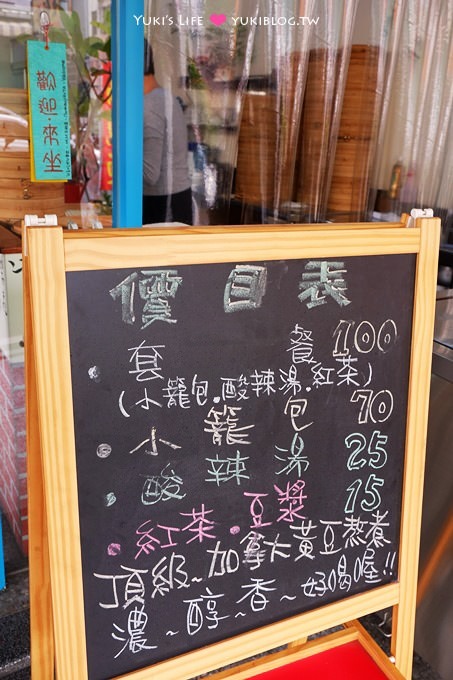 YUKI'S LIFE ♥ YUKIBLOG.TW
歡迎·來坐
價目表
·套餐 100
(小籠包.酸辣湯.紅茶)
·小籠包 70
·酸辣湯 25
·紅茶·豆漿 15
頂級~加拿大黃豆熬煮
濃~醇~香~好喝喔!!